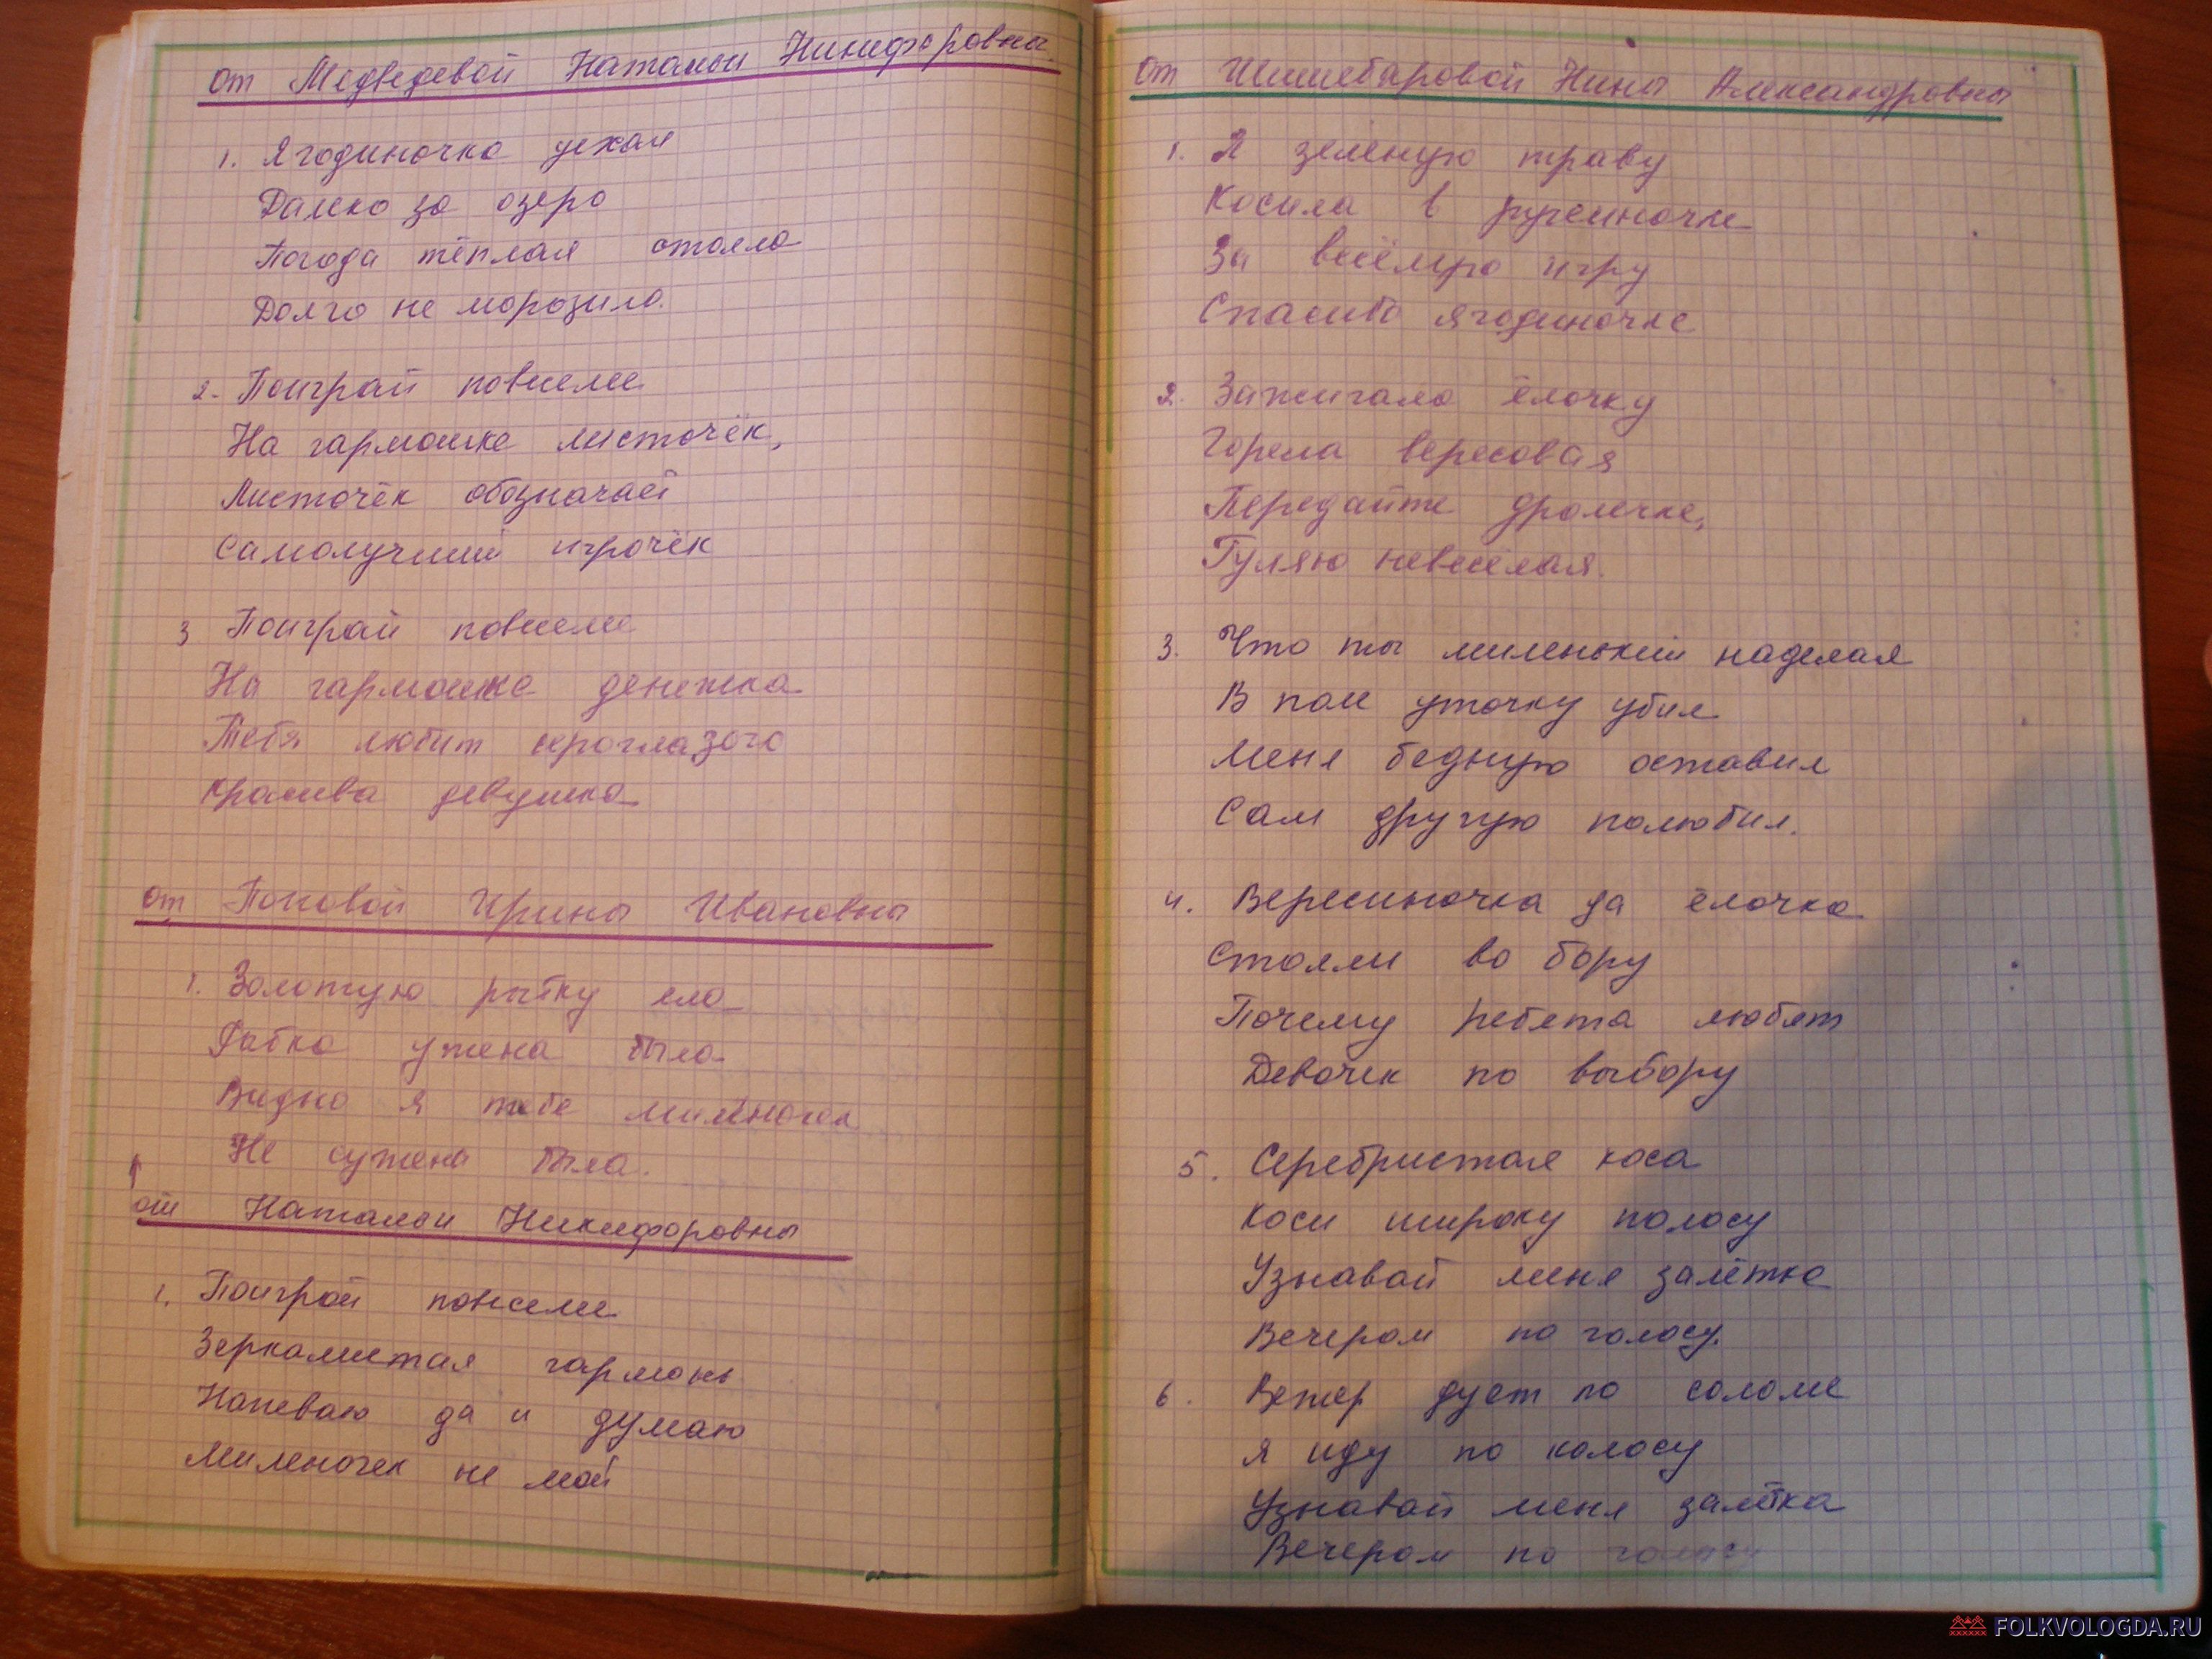 от Медведевой Натальи Никифоровны.
1. Ягодиночка уехал
Далеко за озеро
Погода тёплая стояла
Долго не морозило.
2. Поиграй повеселее
На гармошке листочёк,
Листочёк обозначает
Самолучший игрочёк
3 Поиграй повеселее
На гармошке денежка
Тебя любит сероглазого
Красива девушка
от Поповой Ирины Ивановны
1. Золотую рыбку ела
Рыбка ужена была
Видно я тебе милёночек
Не сужена была.
от Натальи Никифоровны
1. Поиграй повеселее
Зеркалистая гармонь
Напеваю да и думаю
Миленочек не мой
от Нины Александровны
1. Я зеленую траву
Косила в
За весёлую игру
Спасибо ягодиночке
2. Зажигала ёлочку
Горела вересовая
Передайте дролечке,
Гуляю невесёлая.
3. Что ты миленький наделал
В поле уточку убил
Меня бедную оставил
Сам другую полюбил.
4. Вересиночка да ёлочка
Стояли во бору
Почему ребята любят
Девочек по выбору
5. Серебристая коса
Коси широку полосу
Узнавай меня залётка
Вечером по голосу.
6. Ветер дует по соломе
Я иду по колосу
Узнавай меня залётка
Вечером по голосу
FOLKVOLOGDA.RU